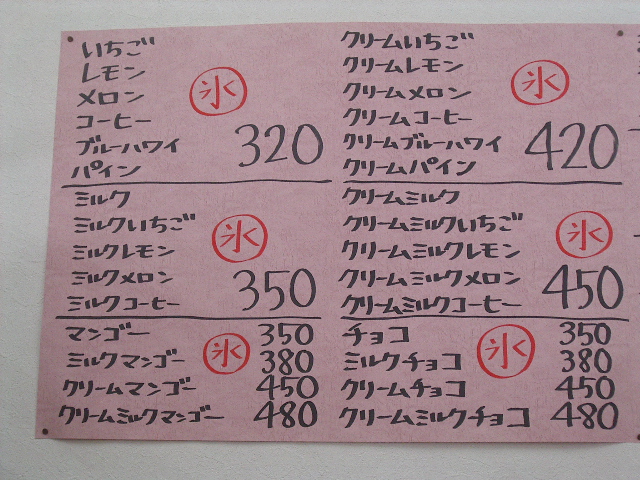 いちご
レモン
メロン
コーヒー
ブルーハワイ
パイン
氷
320
ミルク
ミルクいちご
ミルクレモン
ミルクメロン
ミルクコーヒー
氷
350
マンゴー 350
ミルクマンゴー 380
クリームマンゴー 450
クリームミルクマンゴー 480
氷
クリームいちご
クリームレモン
クリームメロン
クリームコーヒー
クリームブルーハワイ
クリームパイン
氷
420
クリームミルク
クリームミルクいちご
クリームミルクレモン
クリームミルクメロン
クリームミルクコーヒー
氷
450
チョコ 350
ミルクチョコ 380
クリームチョコ 450
クリームミルクチョコ 480
氷